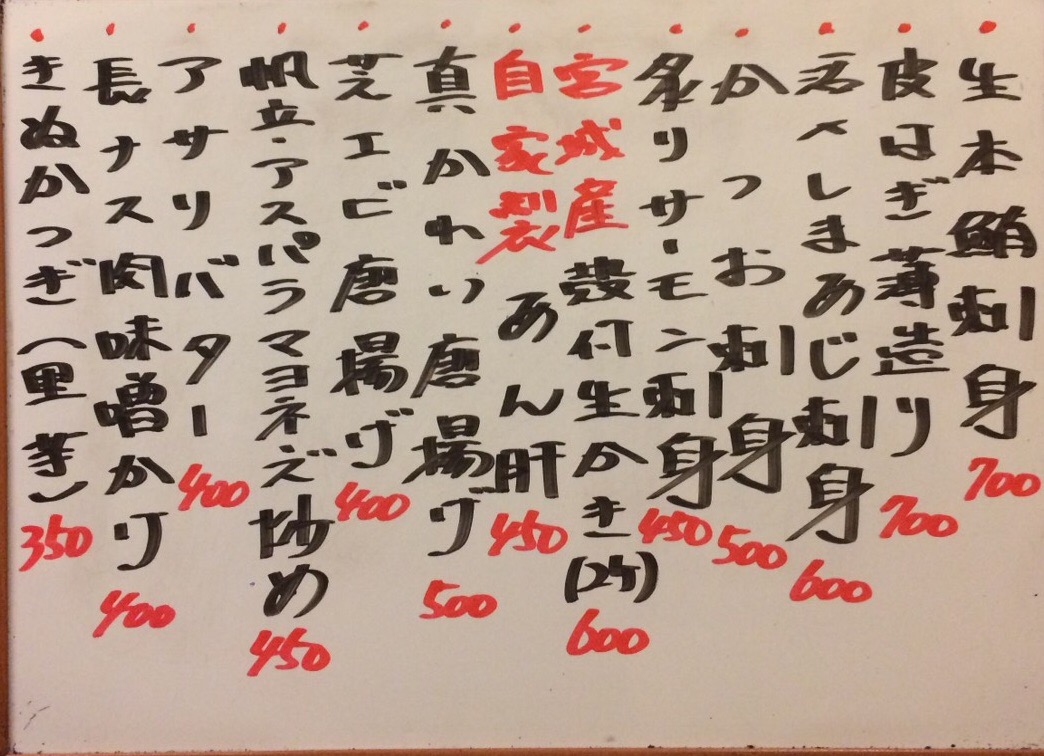 生本鮪刺身 700
皮はぎ薄造り 700
活〆しまあじ刺身 600
かつお刺身 500
炙りサーモン刺身 450
宮城産 殻付生かき(2ケ) 600
自家製 あん肝 450
真かれい唐揚げ 500
芝エビ唐揚げ 400
帆立・アスパラマヨネズ炒め 450
アサリバター 400
長ナス肉味噌かけ 400
きぬかつぎ(里芋) 350